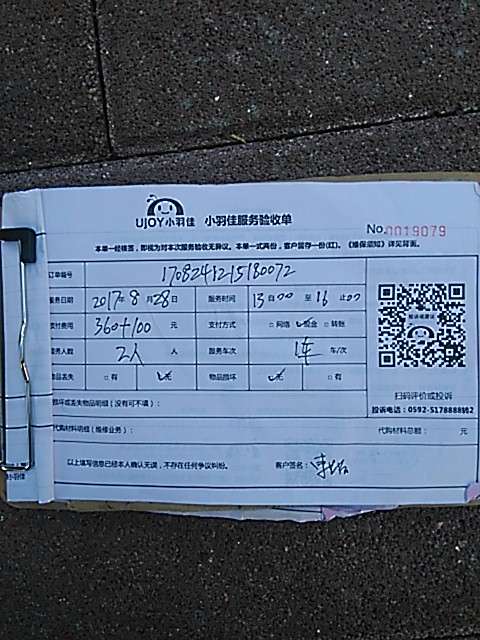 UJOY小羽佳 小羽佳服务验收单
No.0019079
本单一经签, 即视为对本次服务验收无异议。本单一式两份, 客户留存一份(红)。《维保须知》详见背面。
订单编号 1708241215180072
服务日期 2017年8月28日 服务时间 13 时00 至 16 止00
支付费用 360+100 元 支付方式 □网络 ☑现金 □转账
服务人数 2人 人 服务车次 1车 车/次
物品丢失 □有 ☑无 物品损坏 ☑无 □有
损坏或丢失物品明细(没有可不填):
扫码评价或投诉
投诉电话:0592-5178888转2
代购材料明细(维修业务): 代购材料总额: 元
以上填写信息已经本人确认无误,不存在任何争议纠纷。 客户签名: